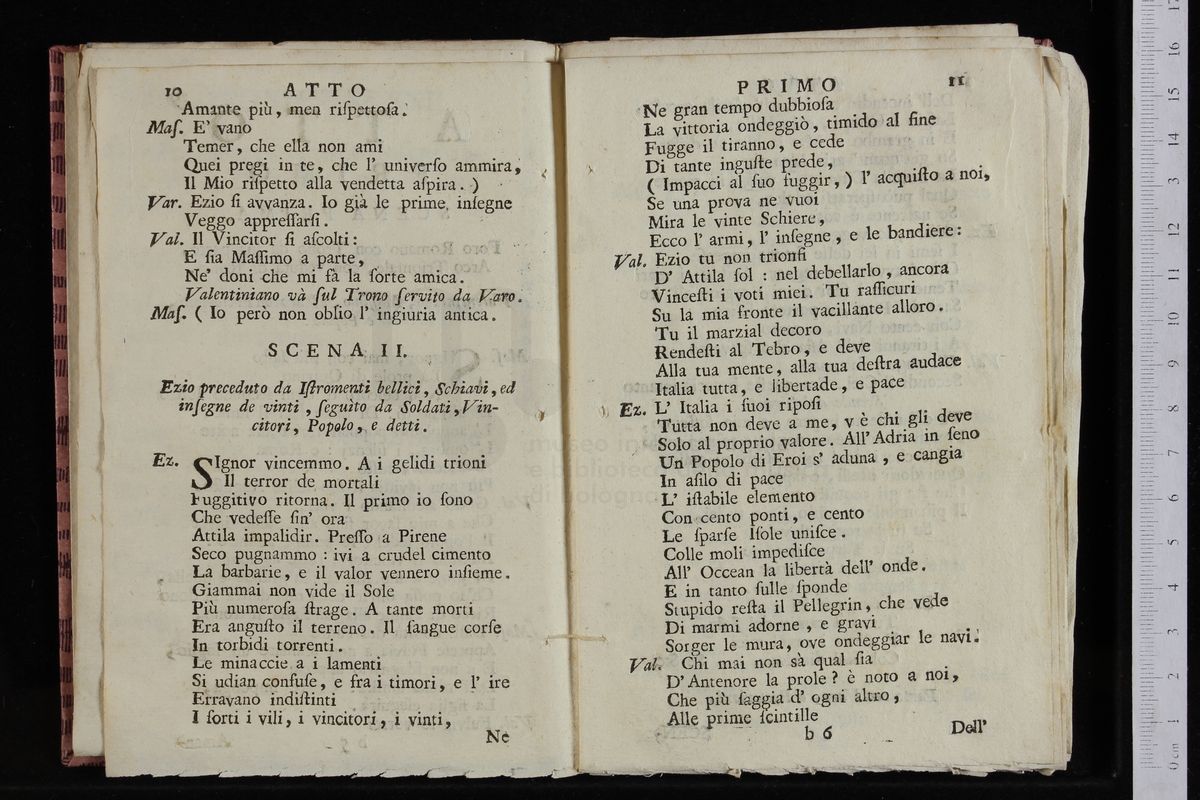 10 ATTO
Amante più, men riſpettoſa.
Maſ. E' vano
Temer, che ella non ami
Quei pregi in te, che l' univerſo ammira,
Il Mio riſpetto alla vendetta aſpira. )
Var. Ezio ſi avvanza. Io già le prime inſegne
Veggo appreſſarſi.
Val. Il Vincitor ſi aſcolti:
E ſia Maſſimo a parte,
Ne' doni che mi fà la ſorte amica.
Valentiniano và ſul Trono ſervito da Varo.
Maſ. ( Io però non oblio l' ingiuria antica.
SCENA II.
Ezio preceduto da Iſtromenti bellici, Schiavi, ed
inſegne de vinti, ſeguito da Soldati, Vin-
citori, Popolo, e detti.
Ez. SIgnor vincemmo. A i gelidi trioni
Il terror de mortali
Fuggitivo ritorna. Il primo io ſono
Che vedeſſe ſin' ora
Attila impalidir. Preſſo a Pirene
Seco pugnammo: ivi a crudel cimento
La barbarie, e il valor vennero inſieme.
Giammai non vide il Sole
Più numeroſa ſtrage. A tante morti
Era anguſto il terreno. Il ſangue corſe
In torbidi torrenti.
Le minaccie a i lamenti
Si udian confuſe, e fra i timori, e l' ire
Erravano indiſtinti
I forti i vili, i vincitori, i vinti,
Ne
PRIMO 11
Ne gran tempo dubbioſa
La vittoria ondeggiò, timido al fine
Fugge il tiranno, e cede
Di tante inguſte prede,
( Impacci al ſuo fuggir, ) l' acquiſto a noi,
Se una prova ne vuoi
Mira le vinte Schiere,
Ecco l' armi, l' inſegne, e le bandiere:
Val. Ezio tu non trionfi
D' Attila ſol: nel debellarlo, ancora
Vinceſti i voti miei. Tu raſſicuri
Su la mia fronte il vacillante alloro.
Tu il marzial decoro
Rendeſti al Tebro, e deve
Alla tua mente, alla tua deſtra audace
Italia tutta, e libertade, e pace
Ez. L' Italia i ſuoi ripoſi
Tutta non deve a me, v è chi gli deve
Solo al proprio valore. All' Adria in ſeno
Un Popolo di Eroi s' aduna, e cangia
In aſilo di pace
L' iſtabile elemento
Con cento ponti, e cento
Le ſparſe Iſole uniſce.
Colle moli impediſce
All' Occean la libertà dell' onde.
E in tanto ſulle ſponde
Stupido reſta il Pellegrin, che vede
Di marmi adorne, e gravi
Sorger le mura, ove ondeggiar le navi.
Val. Chi mai non sà qual ſia
D' Antenore la prole? è noto a noi,
Che più ſaggia d' ogni altro,
Alle prime ſcintille
b 6 Dell'